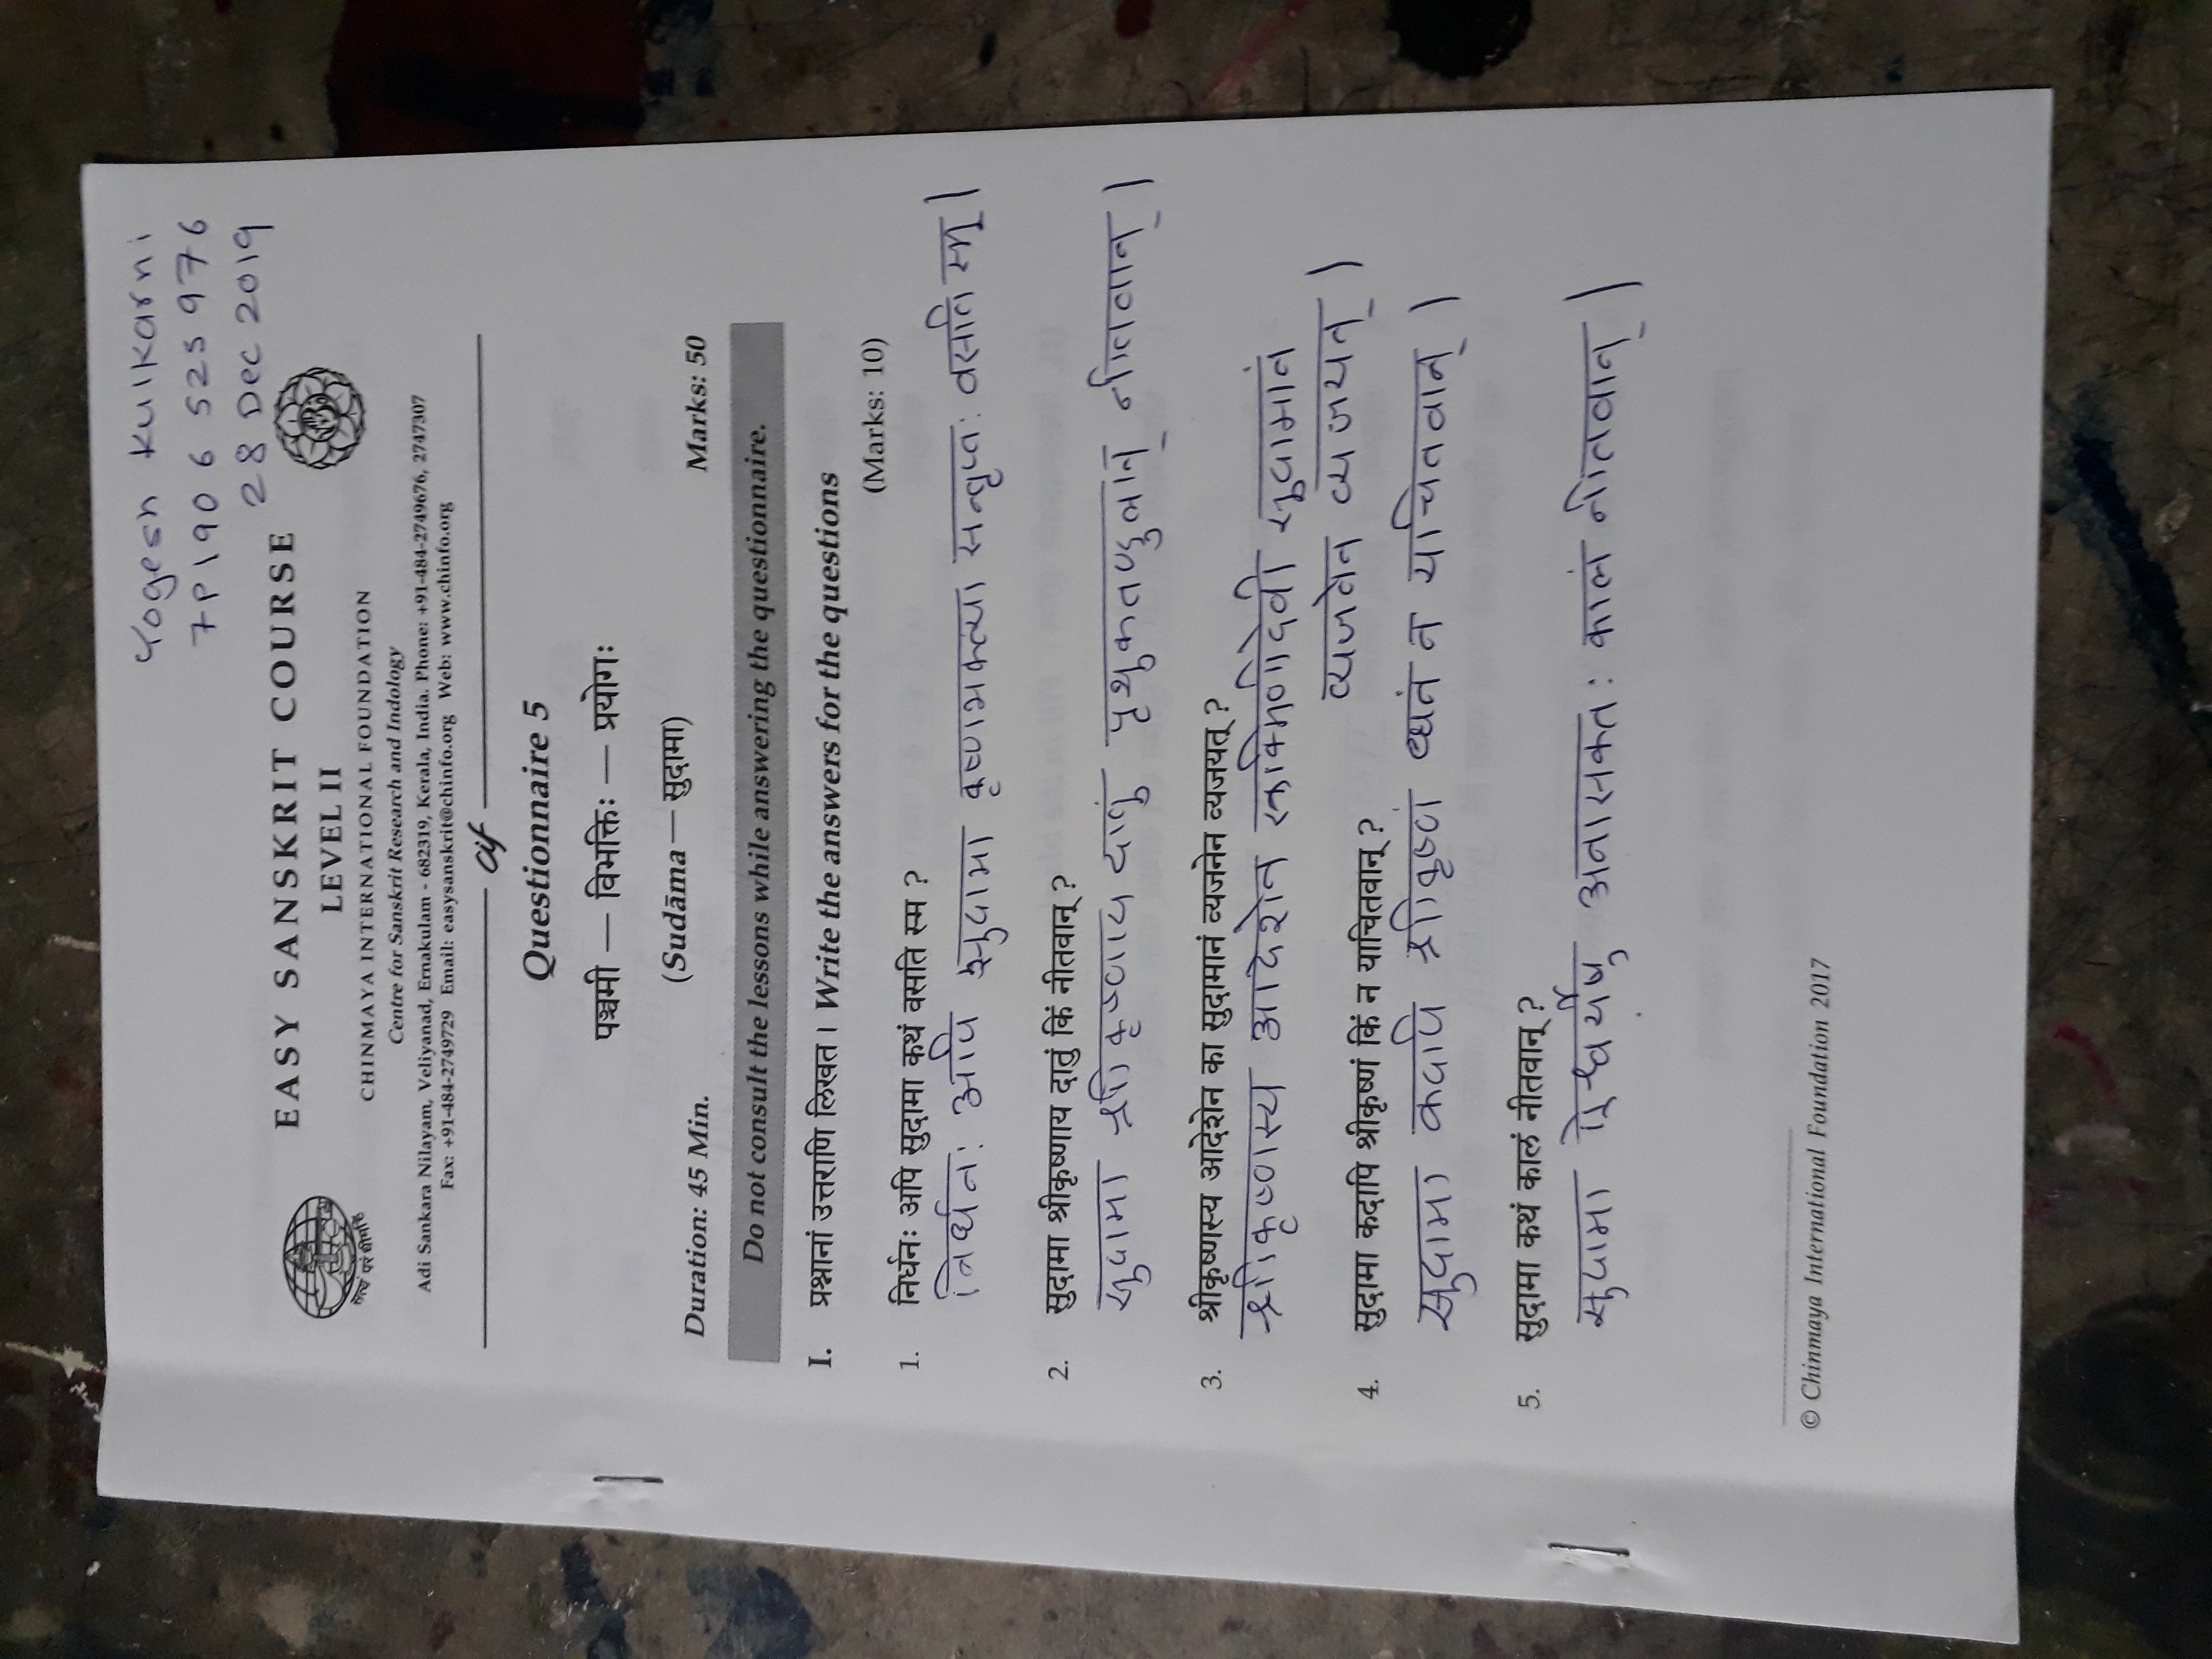 Yogesh Kulkarni
7P1906525976
28 Dec 2019
EASY SANSKRIT COURSE
LEVEL II
CHINMAYA INTERNATIONAL FOUNDATION
Centre for Sanskrit Research and Indology
Adi Sankara Nilayam, Veliyanad, Ernakulam - 682319, Kerala, India. Phone: +91-484-2749676, 2747307
Fax: +91-484-2749729 Email: easysanskrit@chinfo.org Web: www.chinfo.org
सत्यं परं धीमहि
cif
Questionnaire 5
पञ्चमी — विभक्तिः — प्रयोगः
(Sudāma — सुदामा)
Duration: 45 Min. Marks: 50
Do not consult the lessons while answering the questionnaire.
I. प्रश्नानां उत्तराणि लिखत। Write the answers for the questions
(Marks: 10)
1. निर्धनः अपि सुदामा कथं वसति स्म ?
निर्धनः अपि सुदामा कृष्णभक्त्या सन्तृप्तः वसति स्म।
2. सुदामा श्रीकृष्णाय दातुं किं नीतवान् ?
सुदामा श्रीकृष्णाय दातुं पृथुकतण्डुलान् नीतवान्।
3. श्रीकृष्णस्य आदेशेन का सुदामानं व्यजनेन व्यजयत् ?
श्रीकृष्णस्य आदेशेन रूक्मिणीदेवी सुदामानं
व्यजनेन व्यजयत्।
4. सुदामा कदापि श्रीकृष्णं किं न याचितवान् ?
सुदामा कदापि श्रीकृष्णं धनं न याचितवान्।
5. सुदामा कथं कालं नीतवान् ?
सुदामा ऐश्वर्येषु अनासक्तः कालं नीतवान्।
© Chinmaya International Foundation 2017